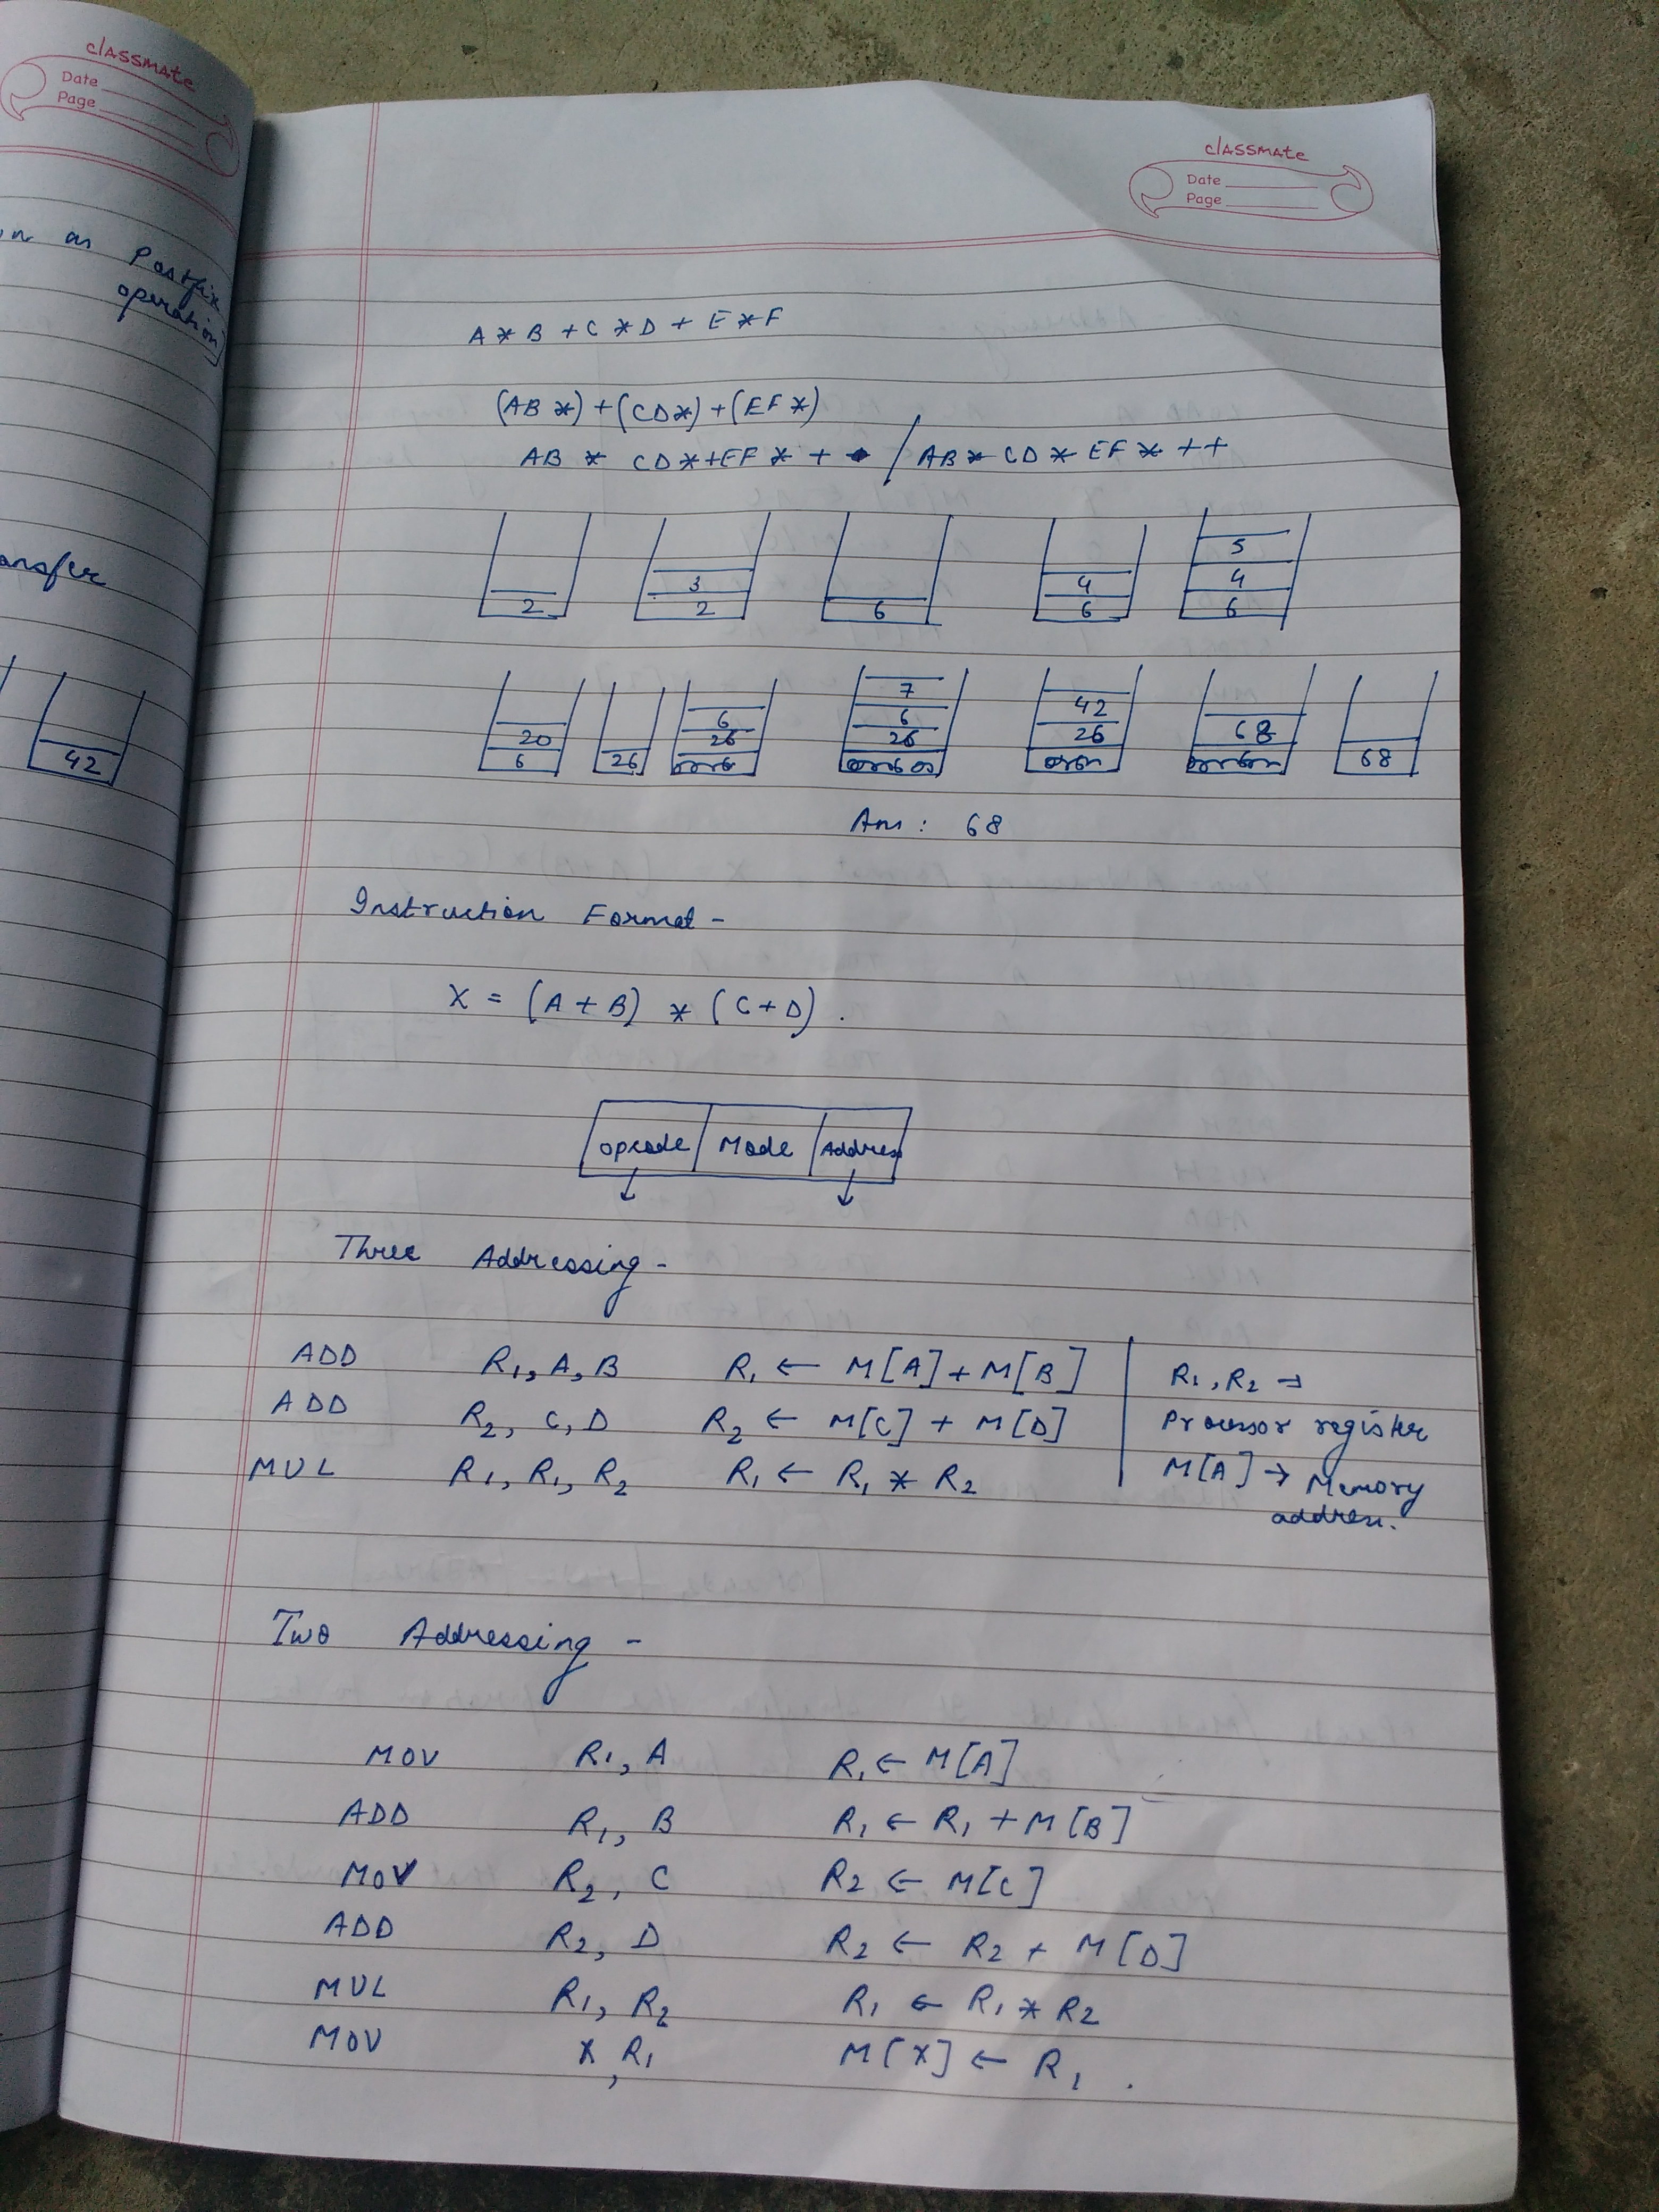 classmate
Date
Page
on as Postfix
operation
ansfer
42
classmate
Date
Page
A * B + C * D + E * F
(AB *) + (CD*) + (EF *)
AB * CD*+EF * + / AB * CD * EF * ++
2
3
2
6
4
6
5
4
6
20
6
26
6
26
7
6
26
42
26
68
68
Ans : 68
Instruction Format -
X = (A + B) * (C + D) .
Opcode Mode Address
Three Addressing -
ADD R1, A, B R1 ← M[A] + M[B]
ADD R2, C, D R2 ← M[C] + M[D]
MUL R1, R1, R2 R1 ← R1 * R2
R1, R2 →
Processor register
M[A] → Memory
address.
Two Addressing -
MOV R1, A R1 ← M[A]
ADD R1, B R1 ← R1 + M[B]
MOV R2, C R2 ← M[C]
ADD R2, D R2 ← R2 + M[D]
MUL R1, R2 R1 ← R1 * R2
MOV X, R1 M[X] ← R1 .